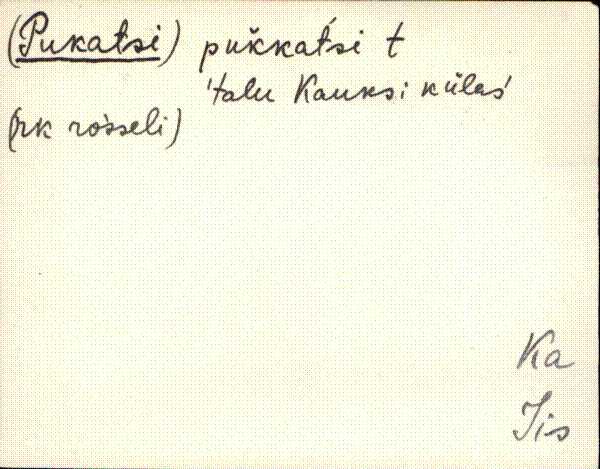 (Pukatsi) puk̆kat́si t
'talu Kauksi külas'
(rk rosseli)
Ka
Iis